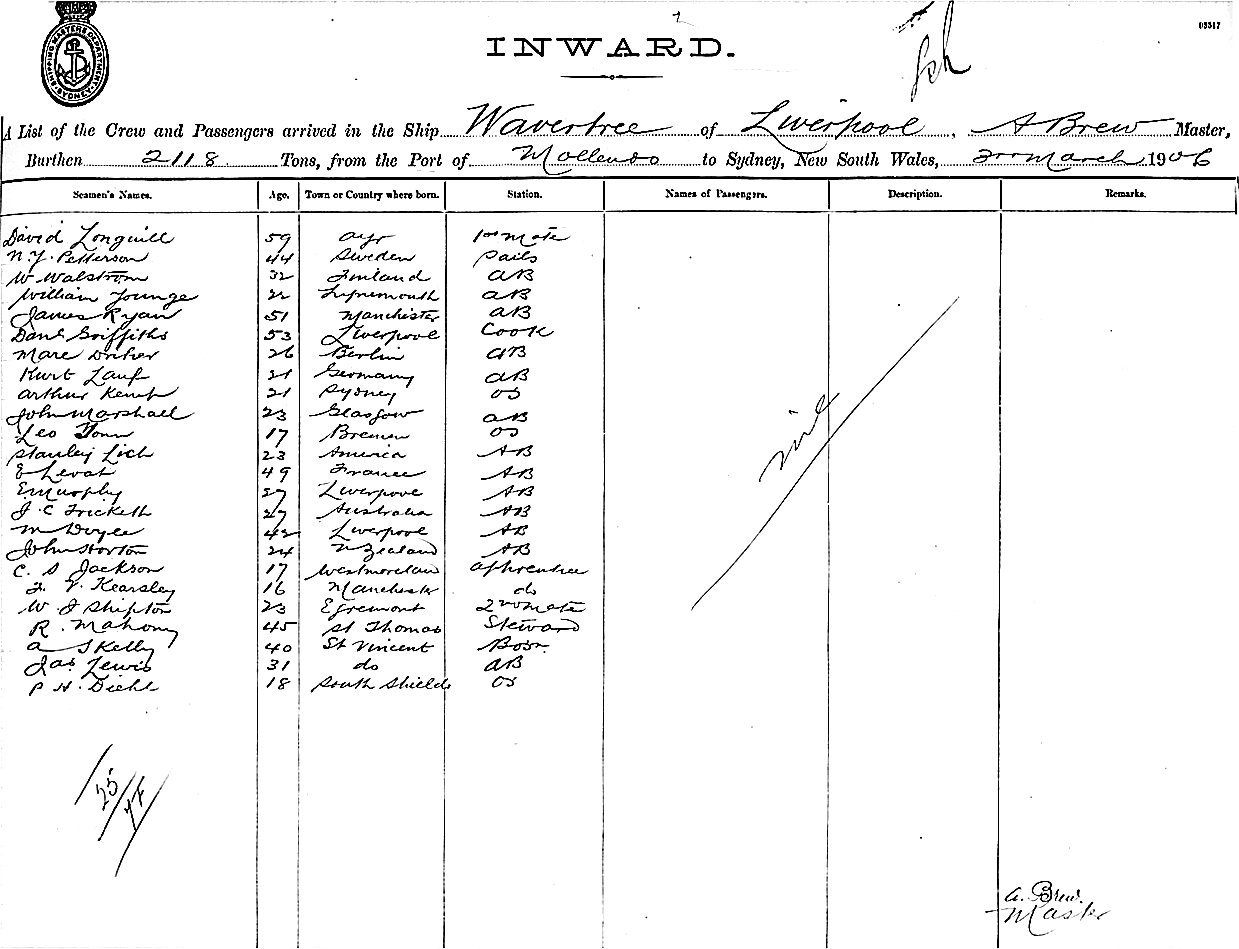 SHIPPING MASTERS DEPARTMENT SYDNEY
03517
INWARD.
A List of the Crew and Passengers arrived in the Ship Wavertree of Liverpool, A Brew Master,
Burthen 2118 Tons, from the Port of Mollendo to Sydney, New South Wales, March 1906
Seamen's Names. Age. Town or Country where born. Station. Names of Passengers. Description. Remarks.
David Longuill 59 Ayr 1st Mate
N. J. Petterson 44 Sweden Sails
W Walstrom 32 Finland AB
William Younge 22 AB
James Ryan 51 Manchester AB
Danl Griffiths 53 Liverpool Cook
Marc 26 Berlin AB
Kurt Lauf 21 Germany AB
Arthur Kemp 21 Sydney OS
John Marshall 23 Glasgow AB
Leo 17 Bremen OS
Stanley Lich 23 America AB
E Levat 49 France AB
E Murphy 27 Liverpool AB
J. C Trickett 27 Australia AB
M Doyle 42 Liverpool AB
John Horton 24 N Zealand AB
C. S Jackson 17 Apprentice
Kearsley 16 Manchester do
W J Shipton 23 Egremont 2nd Mate
R. Mahony 45 St Thomas Steward
A Skelly 40 St Vincent Bosn
Jas Lewis 31 do AB
P H. Diehl 18 South Shields OS
nil
25
A. Brew.
Master